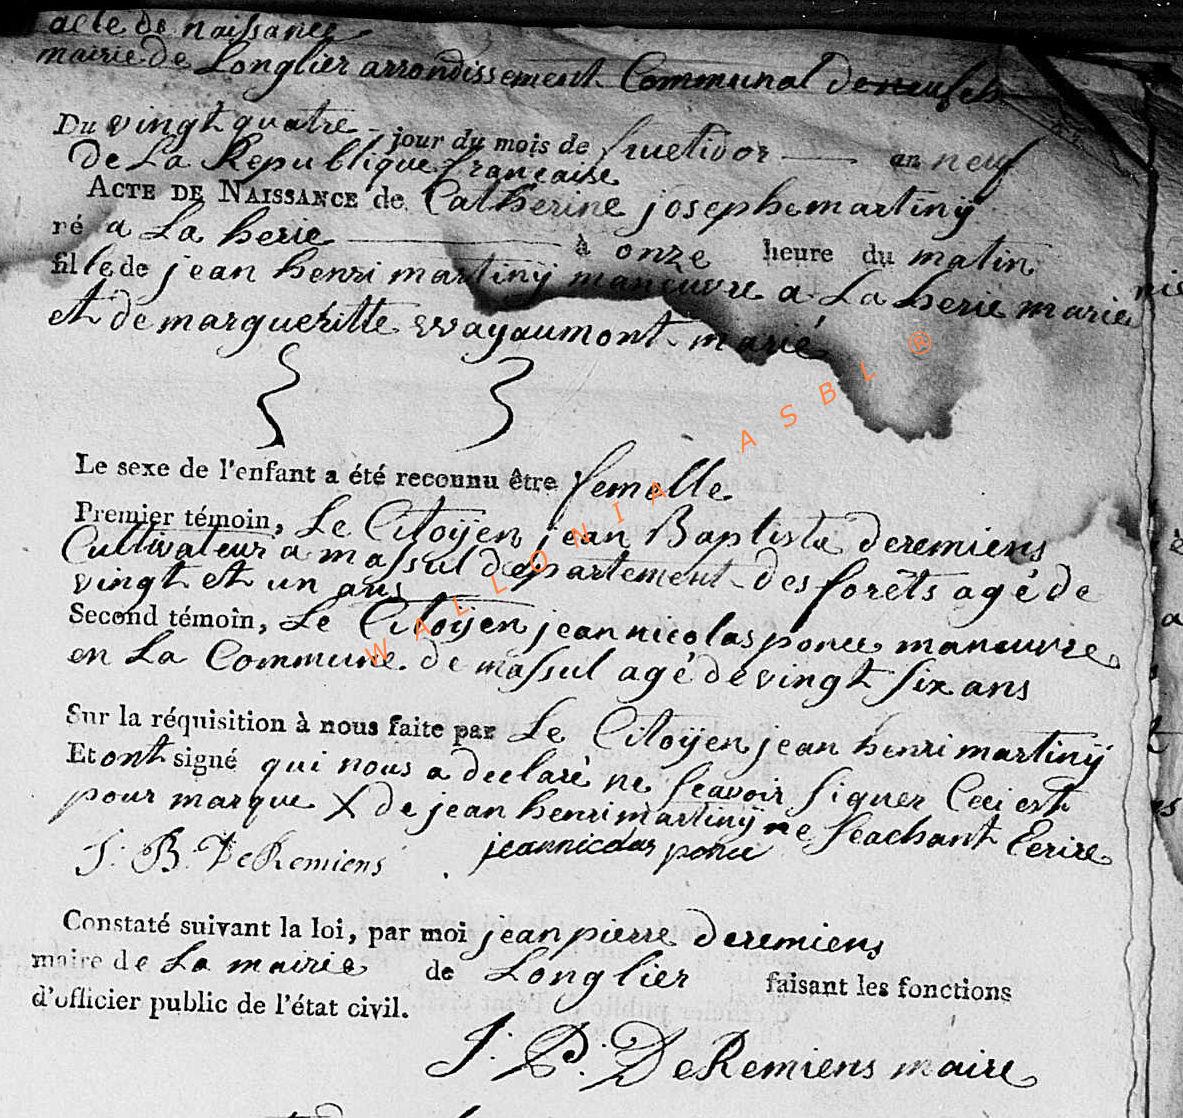 acte de naissance
mairie de Longlier arrondissement Communal de neufch
Du vingt quatre jour du mois de fructidor an neuf
de La Republique française
ACTE DE NAISSANCE de Catherine josephe martinÿ
né a La herie à onze heure du matin
fille de jean henri martinÿ manœuvre a La herie marié
et de margueritte wayaumont marié
Le sexe de l'enfant a été reconnu être femelle
Premier témoin, Le Citoÿen jean Baptiste deremiens
Cultivateur a massul departement des forêts agé de
vingt et un ans
Second témoin, Le Citoÿen jean nicolas ponce manœuvre
en La Commune de massul agé de vingt six ans
Sur la réquisition à nous faite par Le Citoÿen jean henri martinÿ
Et ont signé qui nous a declaré ne sçavoir signer Ceci est
pour marque X de jean henri martinÿ ne seachant Ecrire
J. B. DeRemiens jean nicolas ponce
Constaté suivant la loi, par moi jean pierre deremiens
maire de La mairie de Longlier faisant les fonctions
d'officier public de l'état civil.
J. P. DeRemiens maire
WALLONIA ASBL ®